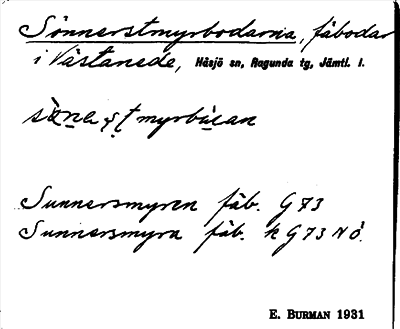 Sönnerstmyrbodarna, fäbodar
i Västanede, Håsjö sn, Ragunda tg, Jämtl. l.
Sunnersmyren fäb. G 73
Sunnersmyra fäb. k G 73 N Ö.
E. BURMAN 1931